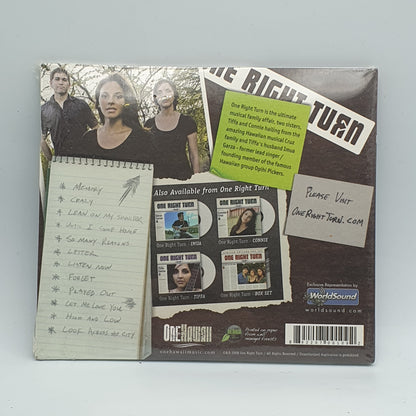 ONE RIGHT TURN
One Right Turn is the ultimate
musical family affair, two sisters,
Tiffa and Connie hailing from the
amazing Hawaiian musical Cruz
family and Tiffa's husband Imua
Garza - former lead singer/
founding member of the famous
Hawaiian group Opihi Pickers.
PLEASE VISIT
ONERIGHTTURN.COM
* MEMORY
* CRAZY
* LEAN ON MY SHOULDER
* UNTIL I COME HOME
* SO MANY REASONS
* LETTER
* LISTEN NOW
* FORGET
* PLAYED OUT
* LET ME LOVE YOU
* HIGH AND LOW
* LOOK ACROSS THE CITY
Also Available from One Right Turn
ONE RIGHT TURN
One Right Turn - IMUA
ONE RIGHT TURN
One Right Turn - CONNIE
ONE RIGHT TURN
One Right Turn - TIFFA
ONE RIGHT TURN
One Right Turn - BOX SET
Exclusive Representation by
WorldSound
worldsound.com
ONEHAWAII
onehawaiimusic.com
Printed on paper
from well
managed forests